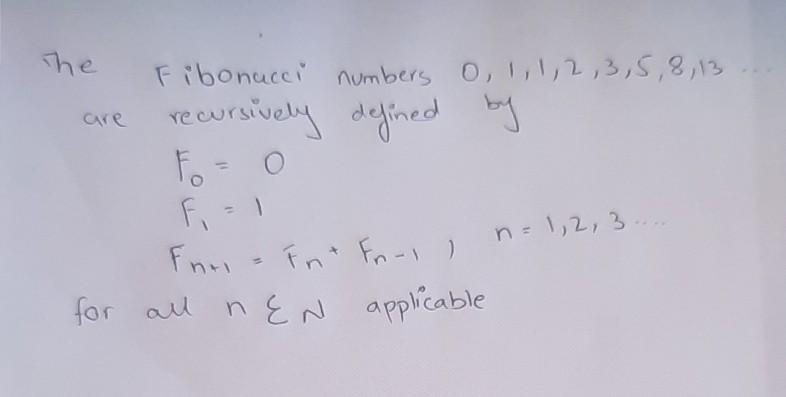 The Fibonacci numbers 0, 1, 1, 2, 3, 5, 8, 13 ...
are recursively defined by
F₀ = 0
F₁ = 1
Fₙ₊₁ = Fₙ + Fₙ₋₁, n = 1, 2, 3 ....
for all n ∈ N applicable